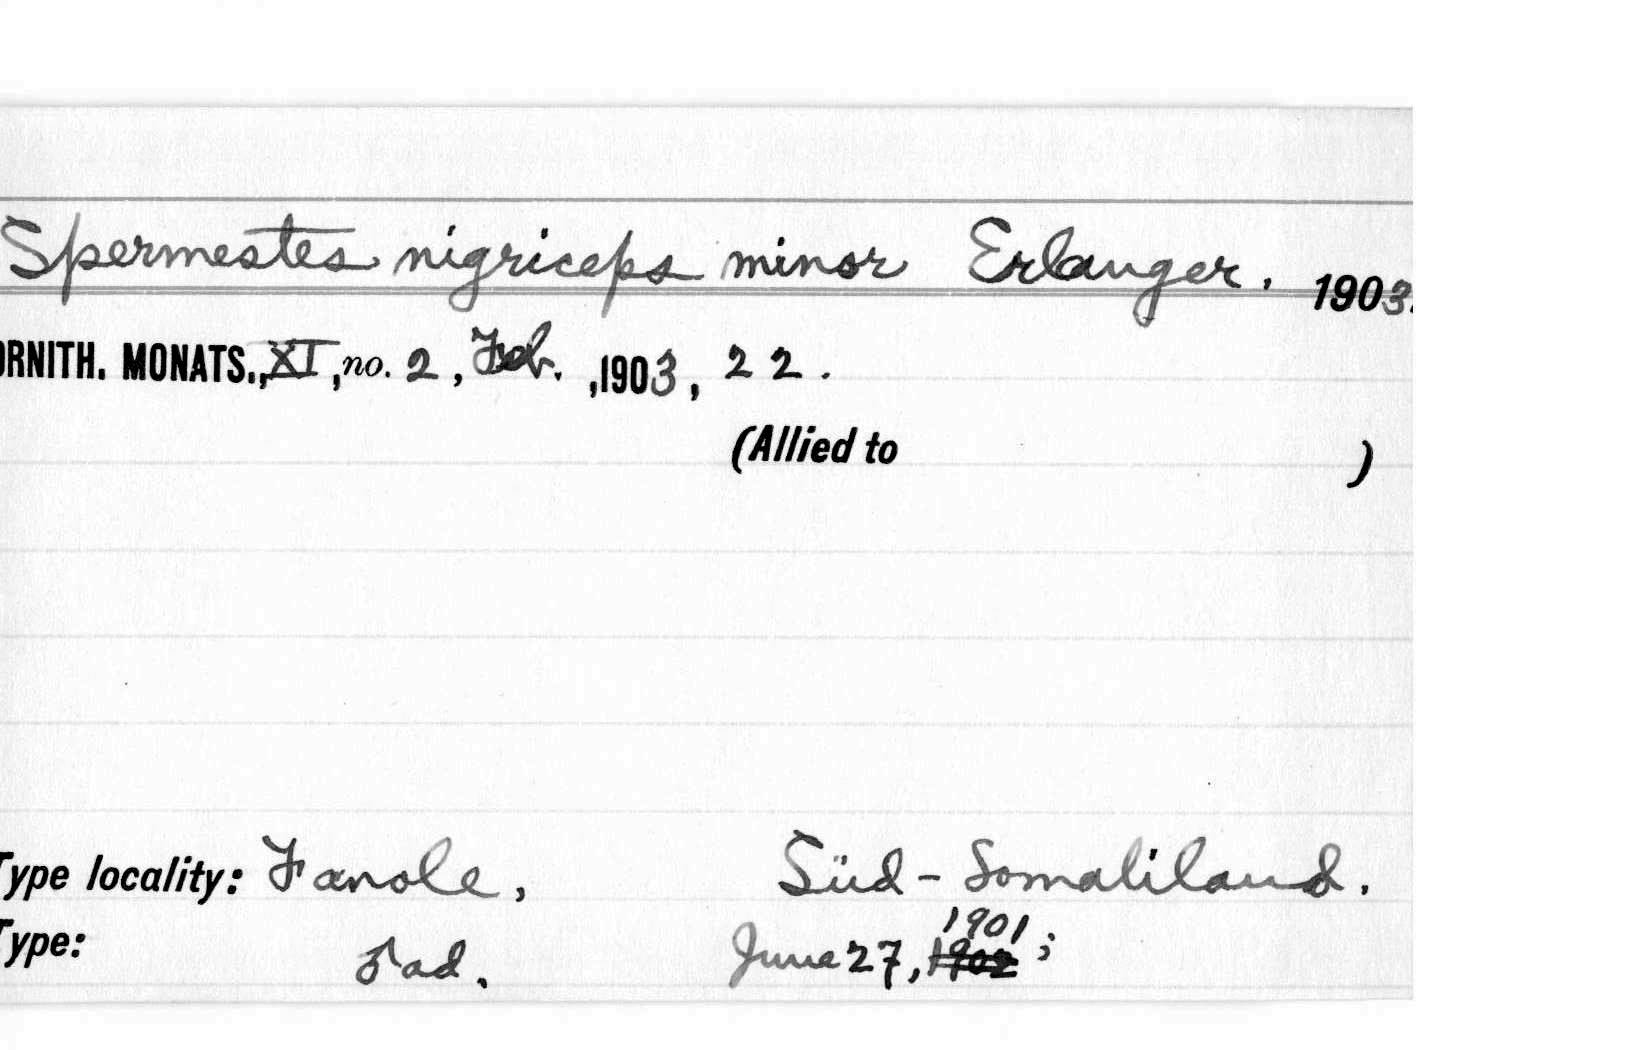 Spermestes nigriceps minor Erlanger. 1903.
ORNITH. MONATS., XI, no. 2, Feb. ,1903, 22.
(Allied to )
Type locality: Fanole, Süd-Somaliland.
Type: ♂ ad. June 27, 1901;